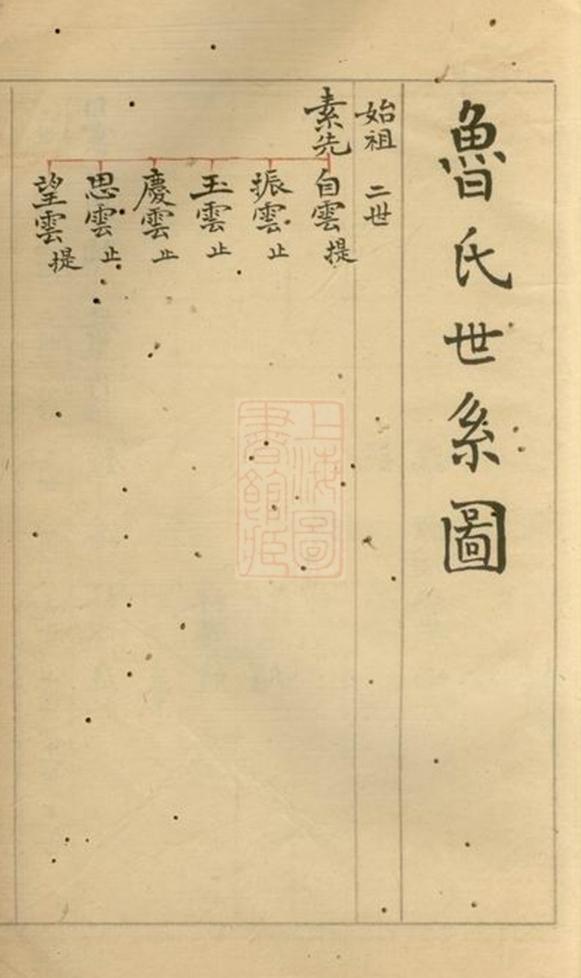 魯氏世系圖
始祖 二世
素先 自雲 提
振雲 止
玉雲 止
慶雲 止
思雲 止
望雲 提
上海圖
書館藏